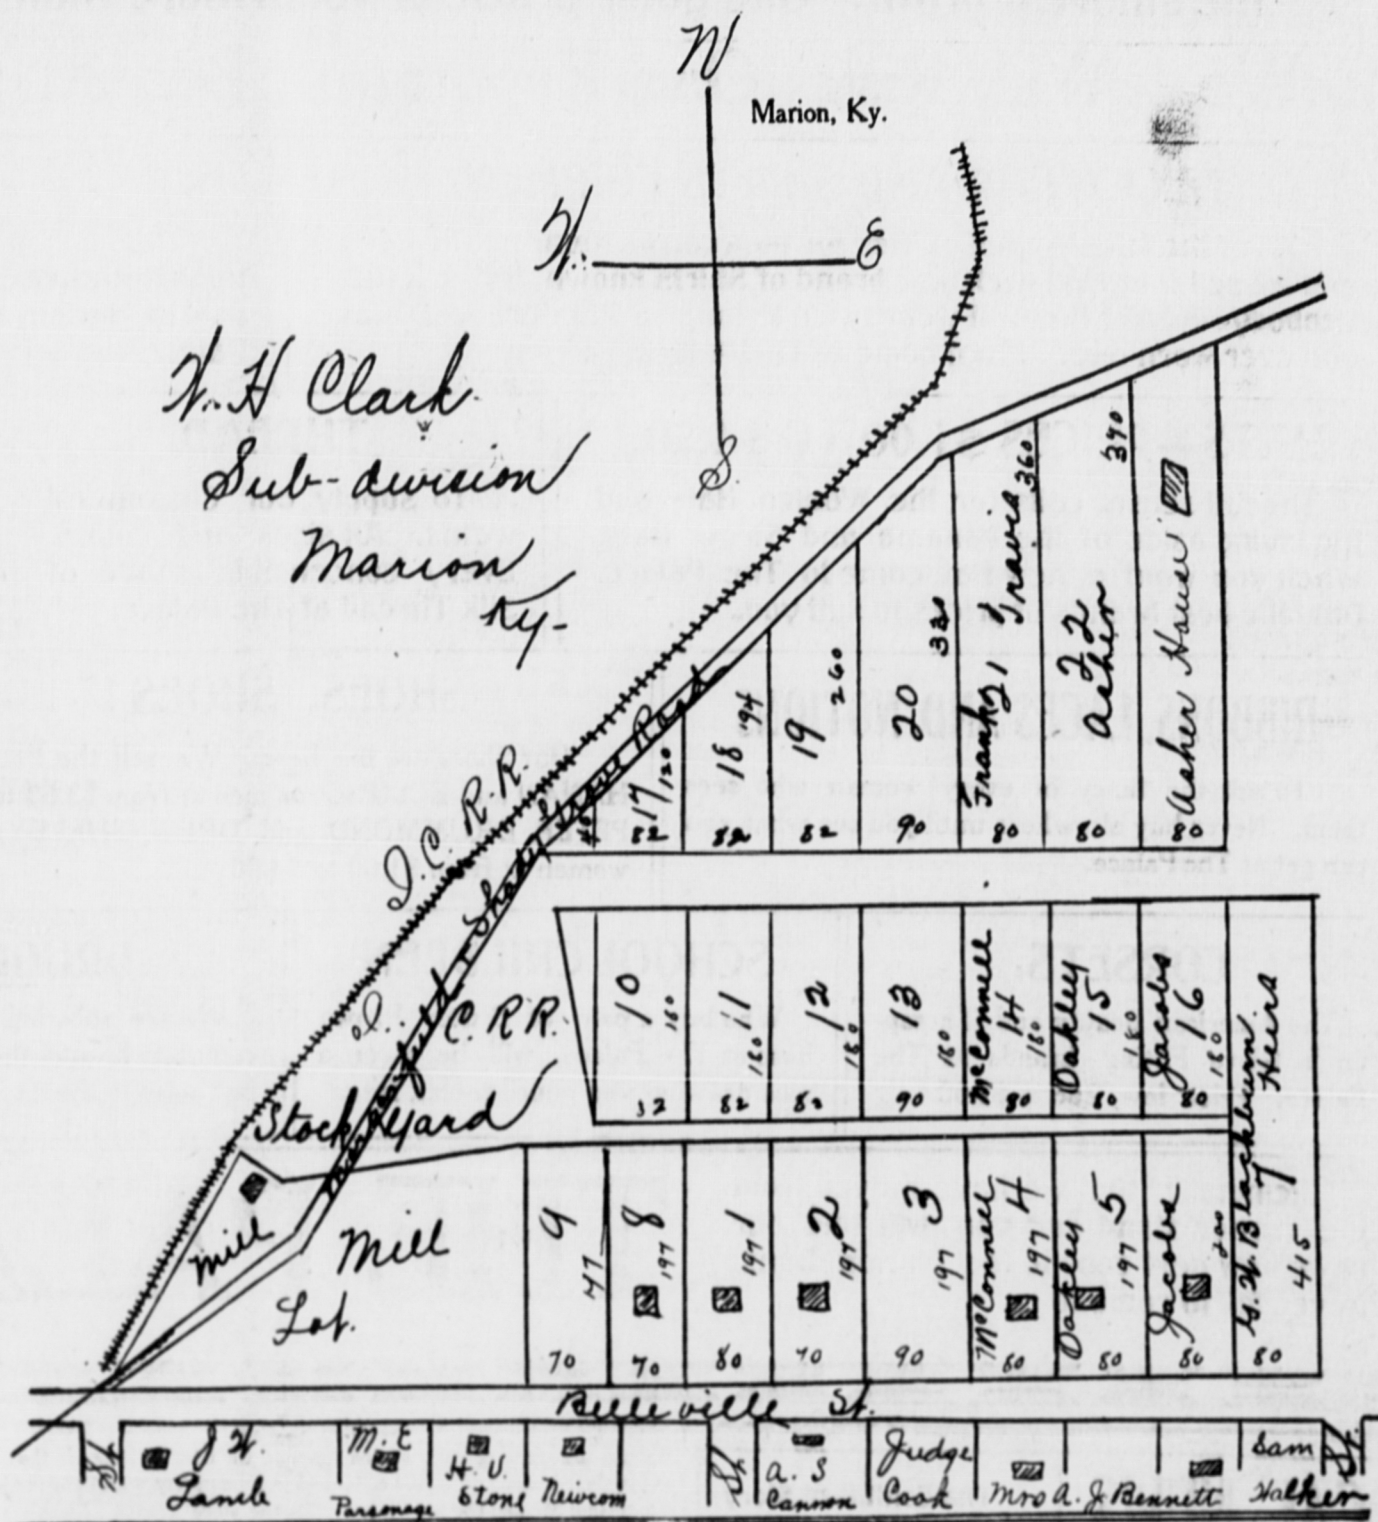 N
Marion, Ky.
W. E
S.
W. H Clark
Sub-division
Marion
Ky-
I.C. R.R.
Road
I. C. R.R.
Stock Yard
17 120 82
18 194 82
19 260 82
20 330 90
Frank 21 Travis 360 80
22 Asher 390 80
Asher Hause 80
10 180 32
11 180 82
12 180 82
13 180 90
McConnell 14 180 80
Oakley 15 180 80
Jacobs 16 180 80
G. W. Blackburn Heirs
7 415 80
Mill
Mill
Lot.
9 47 70
8 197 70
1 197 80
2 197 70
3 197 90
McConnell 4 197 80
Oakley 5 197 80
Jacobs 200 80
Belleville St.
St.
J W. Lamb
M. E Parsonage
H. V. Stone
Newcom
St
A. S Cannon
Judge Cook
Mrs A. J. Bennett
Sam Walker
St.